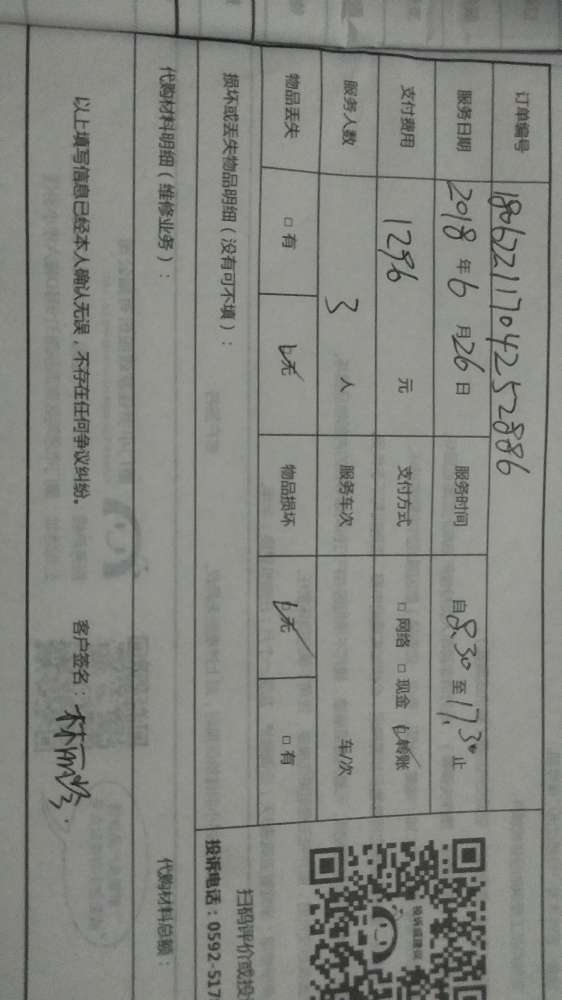 订单编号 180622117042252886
服务日期 2018 年 6 月 26 日 服务时间 自 8.30 至 17.30 止
支付费用 1296 元 支付方式 □ 网络 □ 现金 □ 转账
服务人数 3 人 服务车次 车/次
物品丢失 □ 有 □ 无 物品损坏 □ 无 □ 有
损坏或丢失物品明细（没有可不填）：
代购材料明细（维修业务）： 代购材料总额：
以上填写信息已经本人确认无误，不存在任何争议纠纷。 客户签名：
投诉或建议
扫码评价或投
投诉电话：0592-517